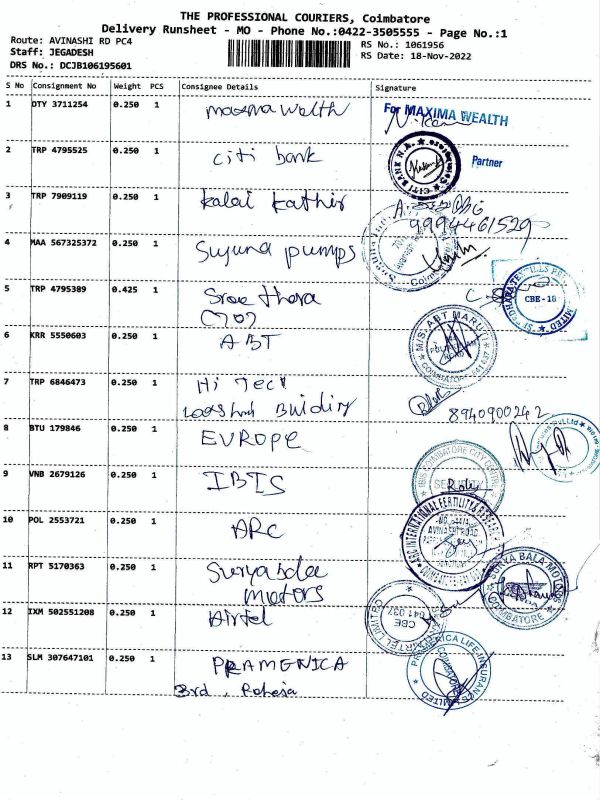 THE PROFESSIONAL COURIERS, Coimbatore
Delivery Runsheet - MO - Phone No.:0422-3505555 - Page No.:1
Route: AVINASHI RD PC4
Staff: JEGADESH
DRS No.: DCJB106195601
RS No.: 1061956
RS Date: 18-Nov-2022
S No Consignment No Weight PCS Consignee Details Signature
1 DTY 3711254 0.250 1 maxma walth
For MAXIMA WEALTH
Partner
2 TRP 4795525 0.250 1 citi bank
CITI BANK N.A.
3 TRP 7909119 0.250 1 kalai kathir
9994461529
4 MAA 567325372 0.250 1 Suguna pumps
5 TRP 4795389 0.425 1 Sree thara
CBE - 18
6 KRR 5550603 0.250 1 ABT
M/S. ABT MARUTI
COIMBATORE - 641 037
7 TRP 6846473 0.250 1 Hi Tect
Building
8940900242
8 BTU 179846 0.250 1 EVROPE
9 VNB 2679126 0.250 1 IBIS
IBIS COIMBATORE CITY CENTRE
SECURITY
10 POL 2553721 0.250 1 ARC
ARC INTERNATIONAL FERTILITY & RESEARCH
AVINASHI ROAD
11 RPT 5170363 0.250 1 Suryabala
motors
SURYA BALA MOTORS
COIMBATORE
12 IXM 502551208 0.250 1 Airtel
AIRTEL LIMITED
CBE
641 037
13 SLM 307647101 0.250 1 PRAMENICA
3rd, Raheja
PRAMERICA LIFE INSURANCE LIMITED
COIMBATORE